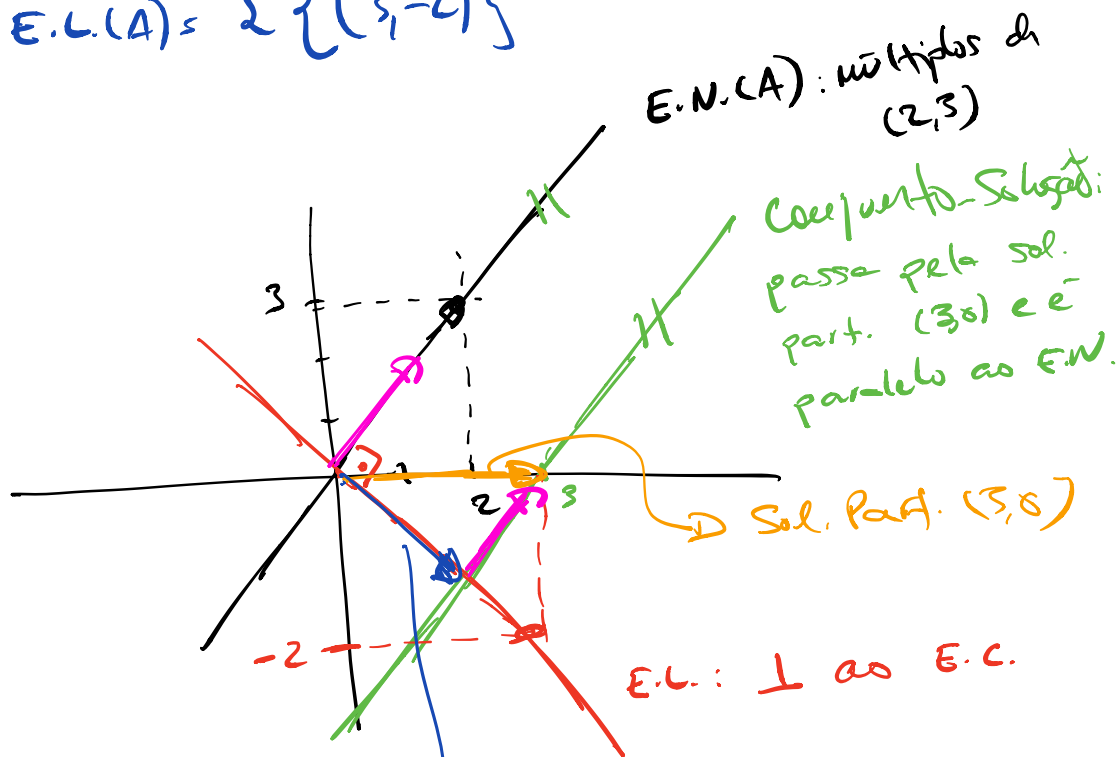 E.L.(A) = L {(3,-2)}
E.N.(A): múltiplos de
(2,3)
Conjunto-Solução:
passa pela sol.
part. (3,0) e é
paralelo ao E.N.
3
1
2
3
Sol. Part. (3,0)
-2
E.L.: ⊥ ao E.C.